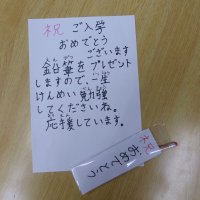 祝 ご入学
おめでとう
ございます
鉛筆をプレゼント
しますので、一生
けんめい勉強
してくださいね。
応援しています。
祝
おめでとう